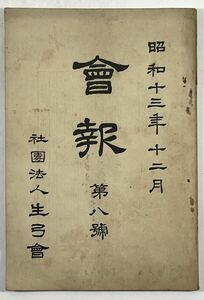 昭和十三年十二月
會報
第八號
社團法人生弓會